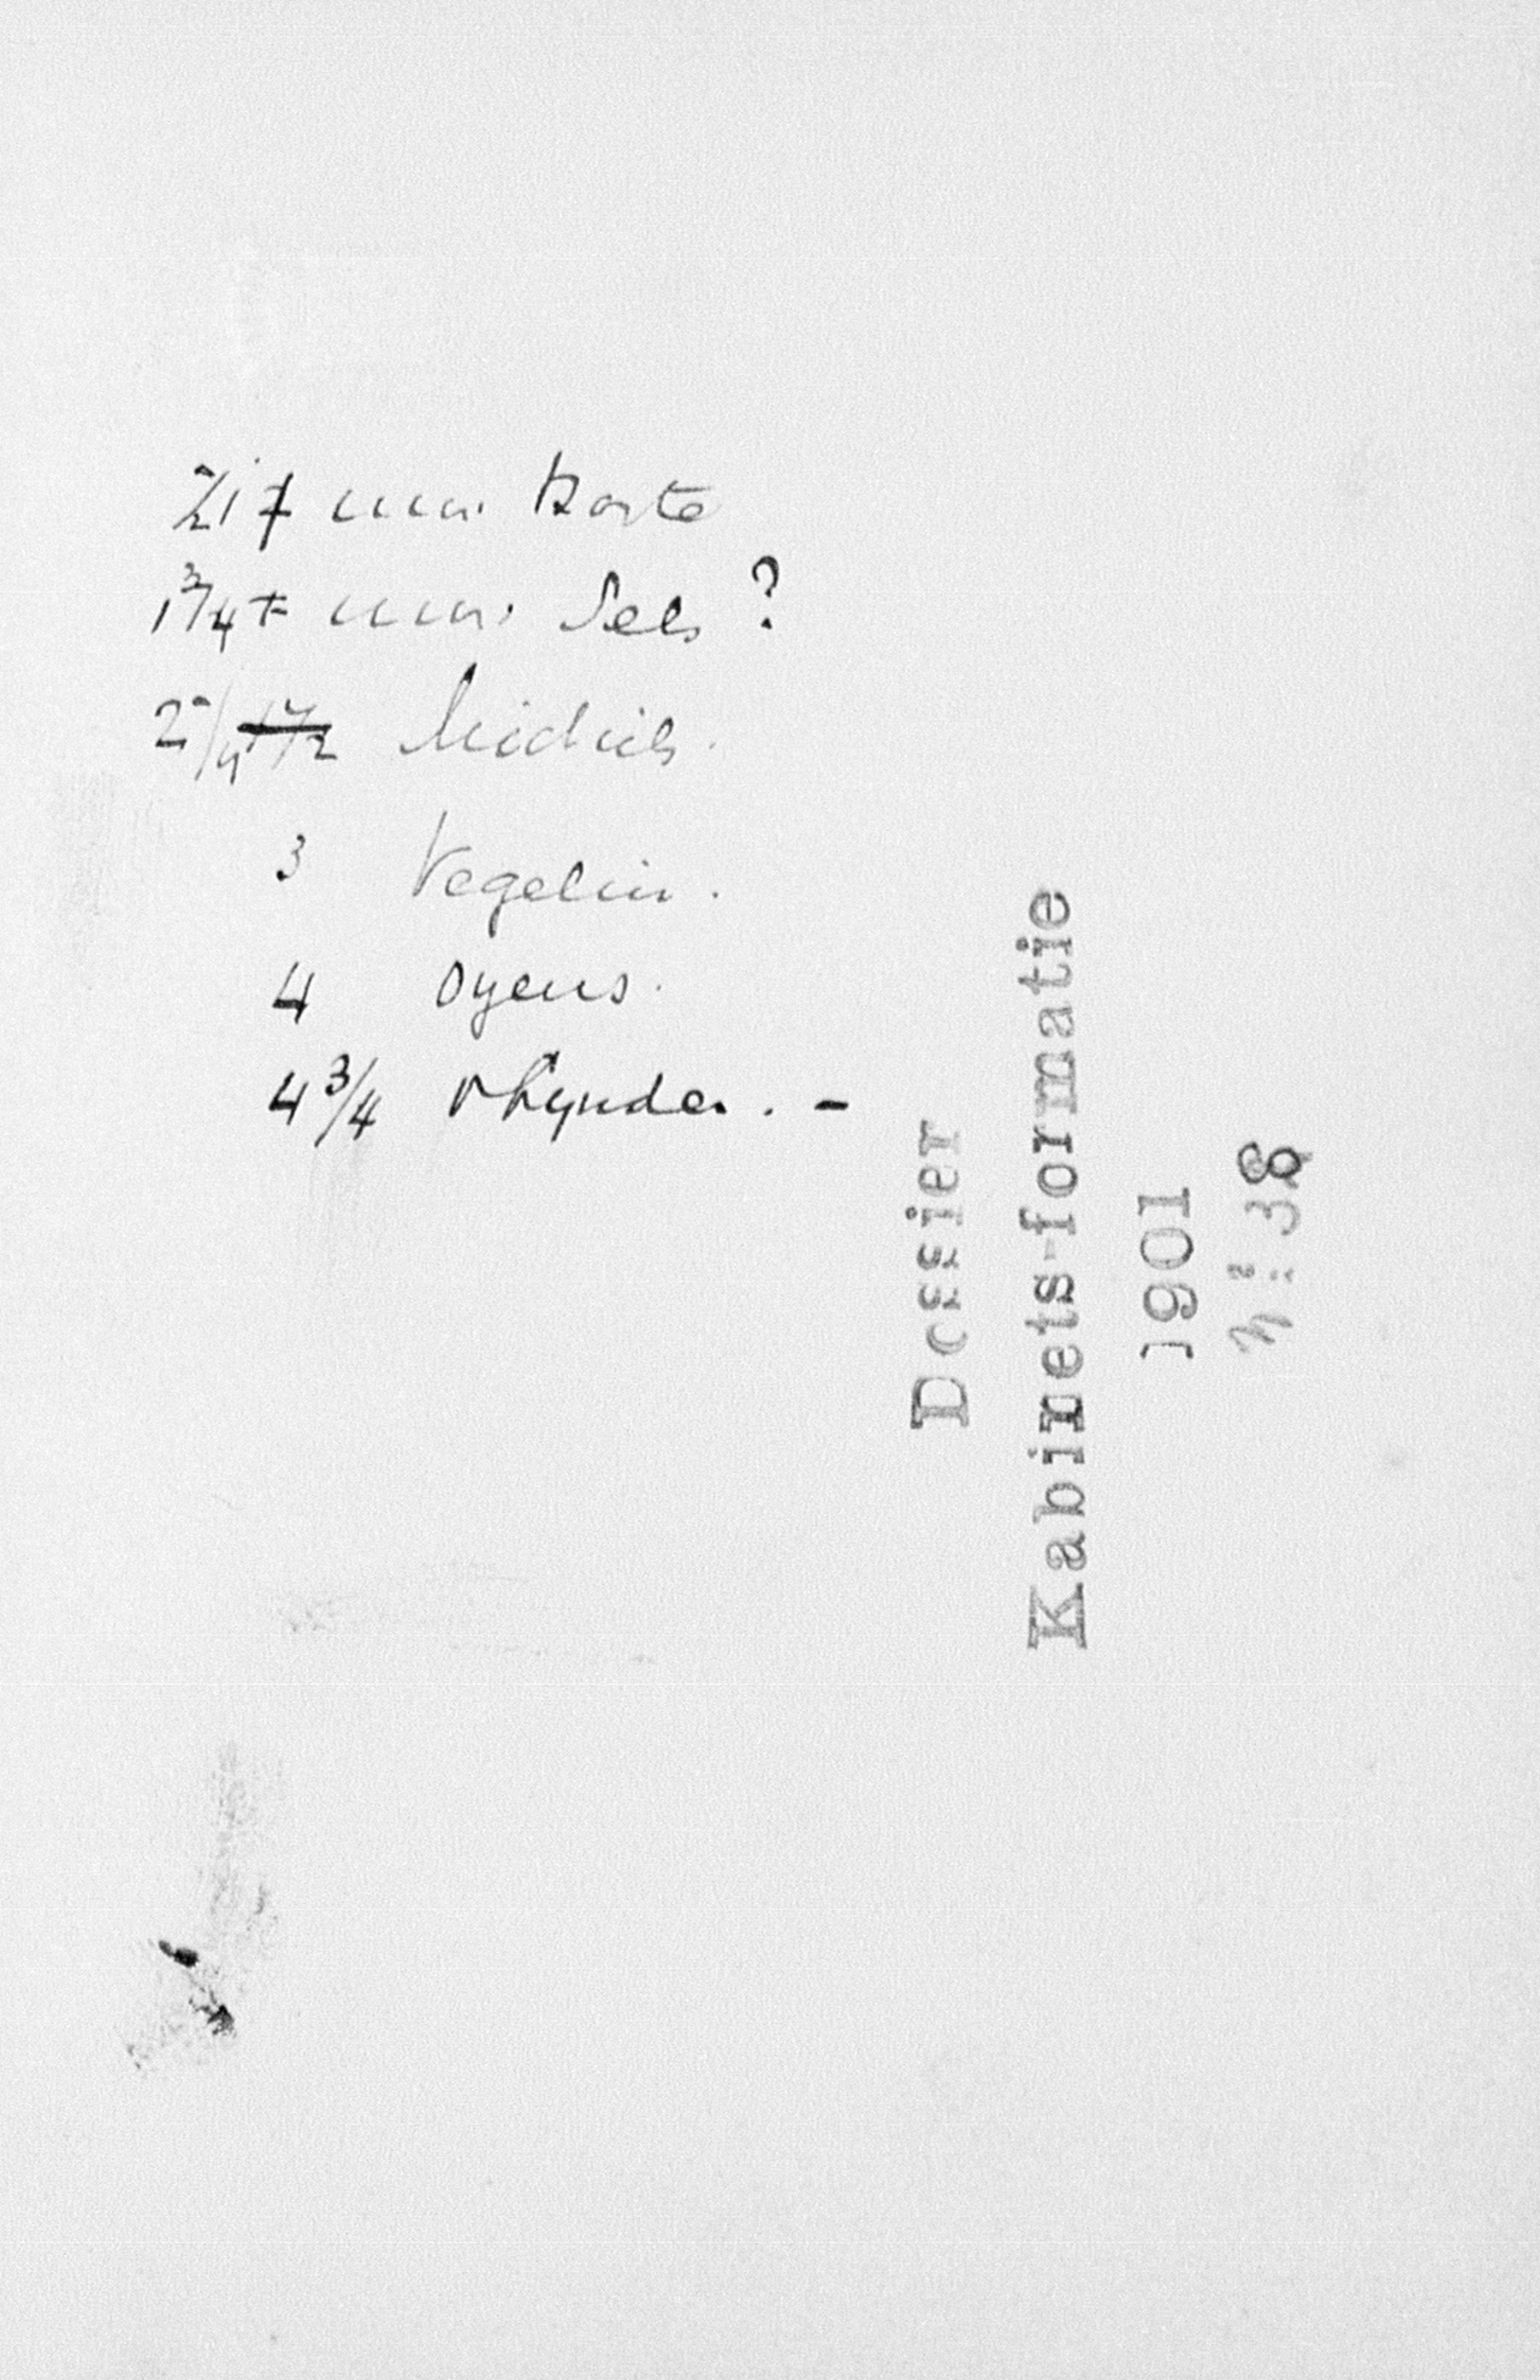 uur. Korte
1¾ uur. Sels ?
2¼ 1½ Michiels.
3 Vegelin.
4 Oyens.
4¾ Rhynden. -
Dossier
Kabinets-formatie
1901
N°: 38